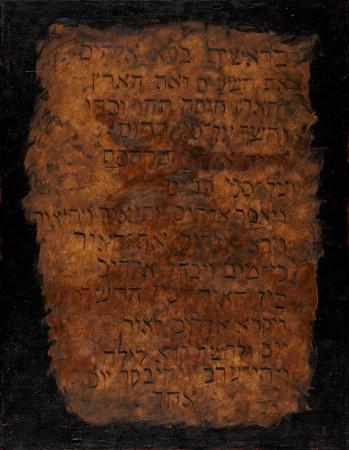 בראשית ברא אלהים
את השמים ואת הארץ
והארץ היתה תהו ובהו
וחשך על פני תהום
ורוח אלהים מרחפת
על פני המים
ויאמר אלהים יהי אור ויהי אור
וירא אלהים את האור
כי טוב ויבדל אלהים
בין האור ובין החשך
ויקרא אלהים לאור
יום ולחשך קרא לילה
ויהי ערב ויהי בקר יום
אחד